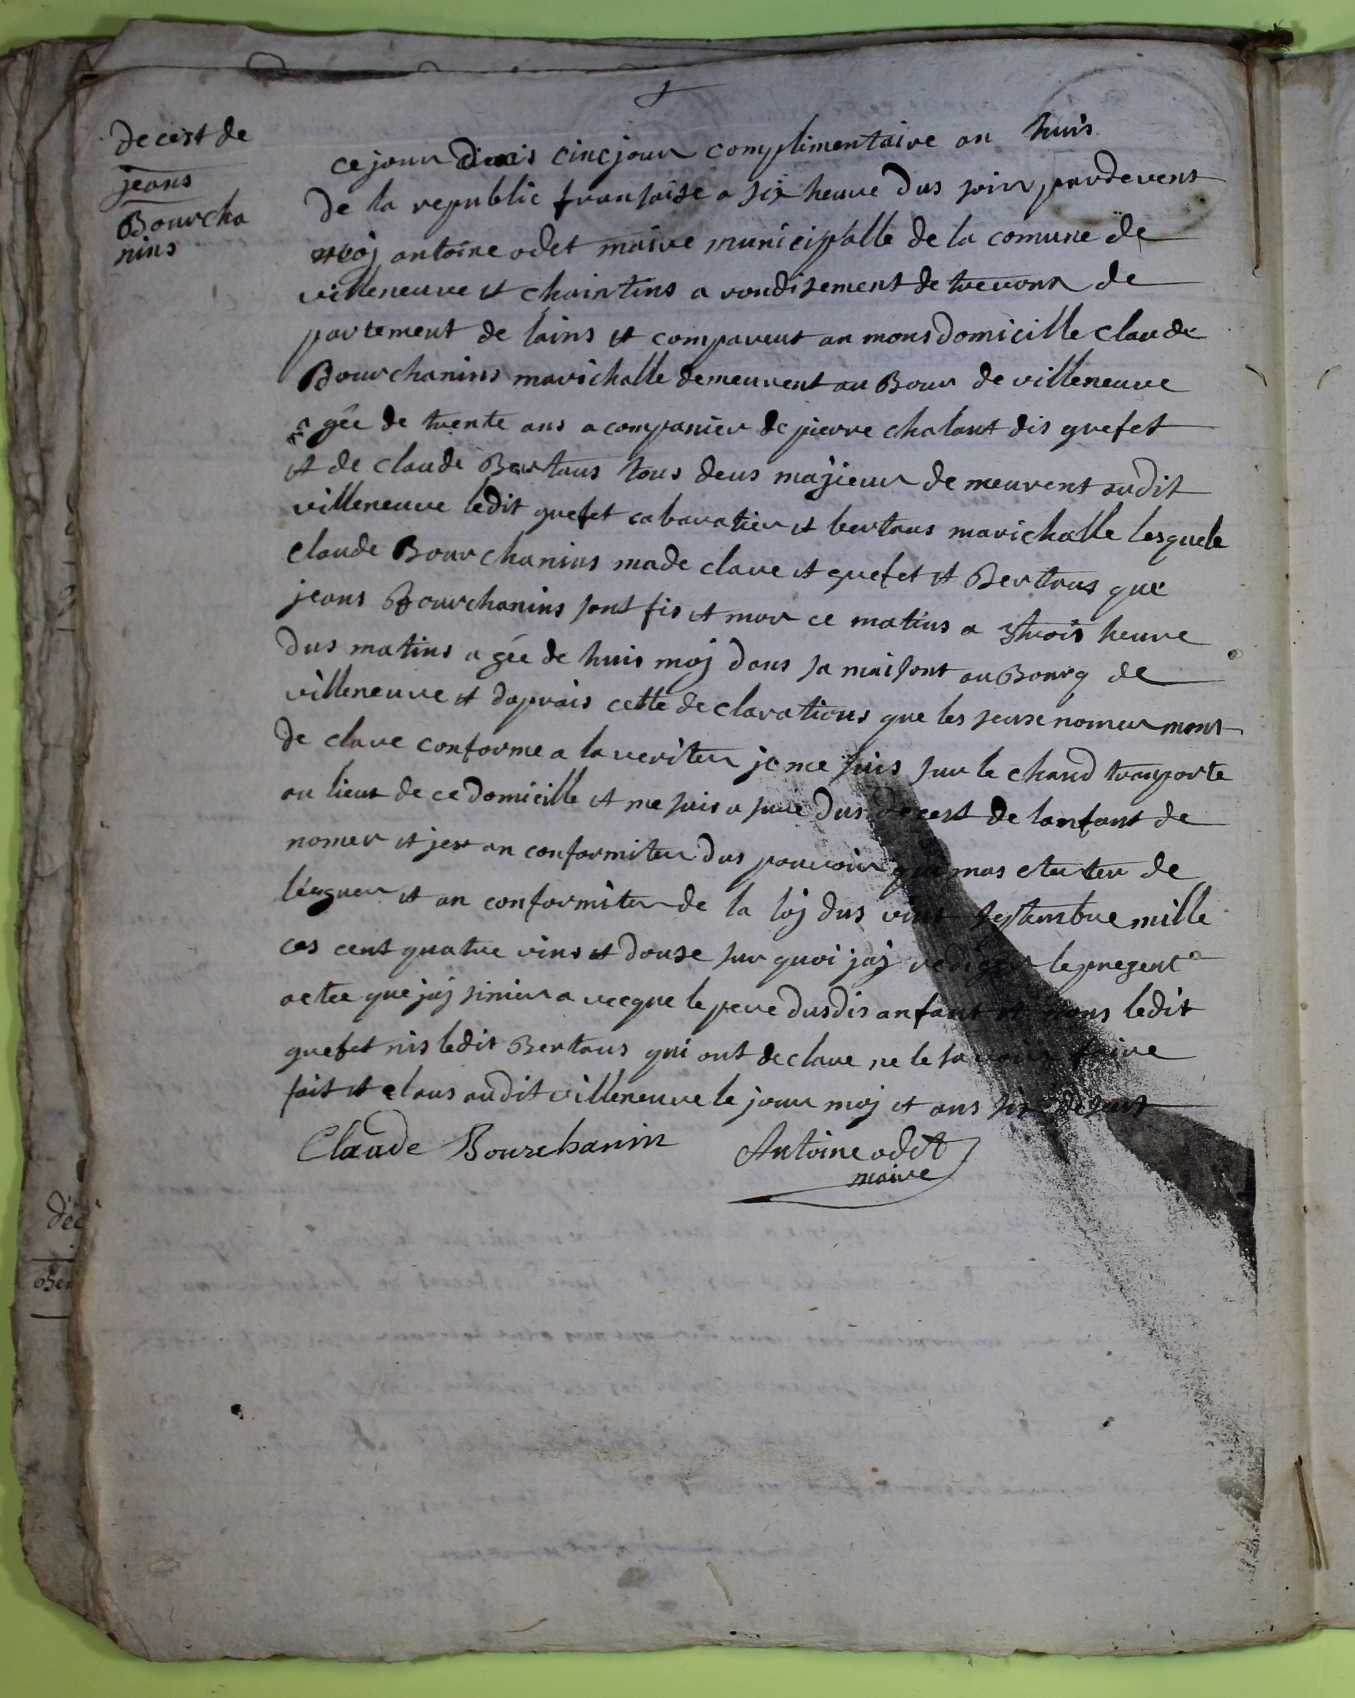 decest de
jeans
Bourcha
nins
ce jour dieuis cinc jour complimentaire an huis
de la republic fransaise a six heure dus soir pardevent
moj antoine odet maire municipalle de la comune de
villeneuve et chaintins a rondisement de trevoux de
partement de lains et compareut an mons domicille claude
Bourchanins marichalle demeurent au Bour de villeneuve
a gée de trente ans acompanier de pierre chalant dis grefet
et de claude Bertaus tous deus majieur demeurent audit
villeneuve ledit grefet cabaratier et bertaus marichalle lesquele
claude Bourchanins made clare et grefet et Bertaus que
jeans Bourchanins sont fis et mor ce matins a 3 trois heure
dus matins a gée de huis moj dans sa maisont au Bourg de
villeneuve et daprais cette declarations que les seuse nomer mont
de clare conforme a la veriter je me suis sur le chand transporte
au lieut de ce domicille et me suis a sure dus decest de lanfant de
nomer et jer an conformiter dus pouvoir qui mas eter ter de
léguer et an conformiter de la loj dus vint septambre mille
ces cent quatre vins et douse sur quoi jaj rediger le present
actee que jaj sinier a vecque le pere dusdis anfant et nons ledit
grefet nis ledit Bertaus qui ont declare ne le savoir faire
fait et claus audit villeneuve le jour moj et ans sis desus
Claude Bourchanin
Antoine odet
maire
déc
Ber